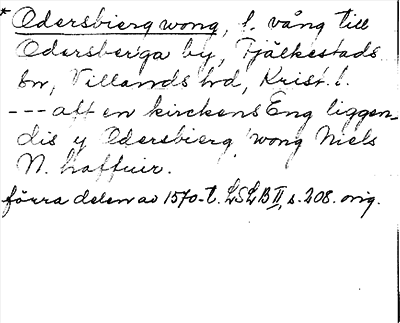 * Odersbierg wong, f. vång till
Odersberga by, Fjälkestads
sn, Villands hd, Krist. l.
--- aff en kirckens Eng liggen-
dis y Odersbierg wong Niels
N. haffuir.
förra delen av 1570-t. LSLB II, s. 208. orig.